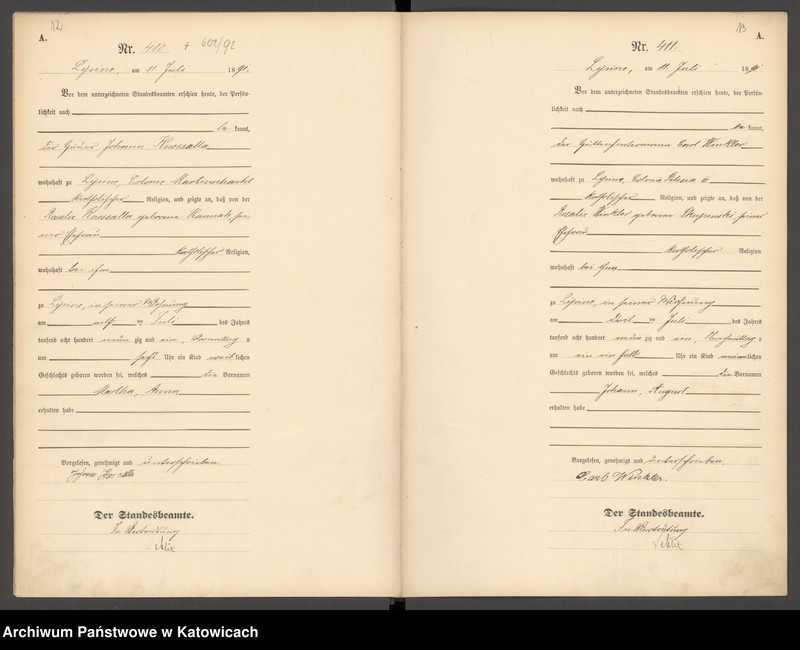 12
A.
Nr. 410 + 602/92
Lipine, am 11 Juli 1891.
Vor dem unterzeichneten Standesbeamten erschien heute, der Persön-
lichkeit nach
be kannt,
der Johann Kossalla
wohnhaft zu Lipine, Colonie Martinschacht
katholischer Religion, und zeigte an, daß von der
Rosalie Kossalla geborene sei
ner Ehefrau
katholischer Religion,
wohnhaft bei ihm
zu Lipine, in seiner Wohnung
am acht ten Juli des Jahres
tausend acht hundert neun zig und ein, Vormittag s
um sechs Uhr ein Kind weib lichen
Geschlechts geboren worden sei, welches die Vornamen
Martha, Anna
erhalten habe
Vorgelesen, genehmigt und unterschrieben
Johann
Der Standesbeamte.
In Vertretung
13
A.
Nr. 411.
Lipine, am 11. Juli 1891
Vor dem unterzeichneten Standesbeamten erschien heute, der Persön-
lichkeit nach
be kannt,
der Carl Winkler
wohnhaft zu Lipine, Colonie Silesia
katholischer Religion, und zeigte an, daß von der
Rosalie Winkler geborene seiner
Ehefrau
katholischer Religion
wohnhaft bei ihm
zu Lipine, in seiner Wohnung
am drit ten Juli des Jahres
tausend acht hundert neun zig und ein, Nachmittag s
um ein ein halb Uhr ein Kind männlichen
Geschlechts geboren worden sei, welches die Vornamen
Johann, August
erhalten habe
Vorgelesen, genehmigt und unterschrieben.
Carl Winkler.
Der Standesbeamte.
In Vertretung
Archiwum Państwowe w Katowicach